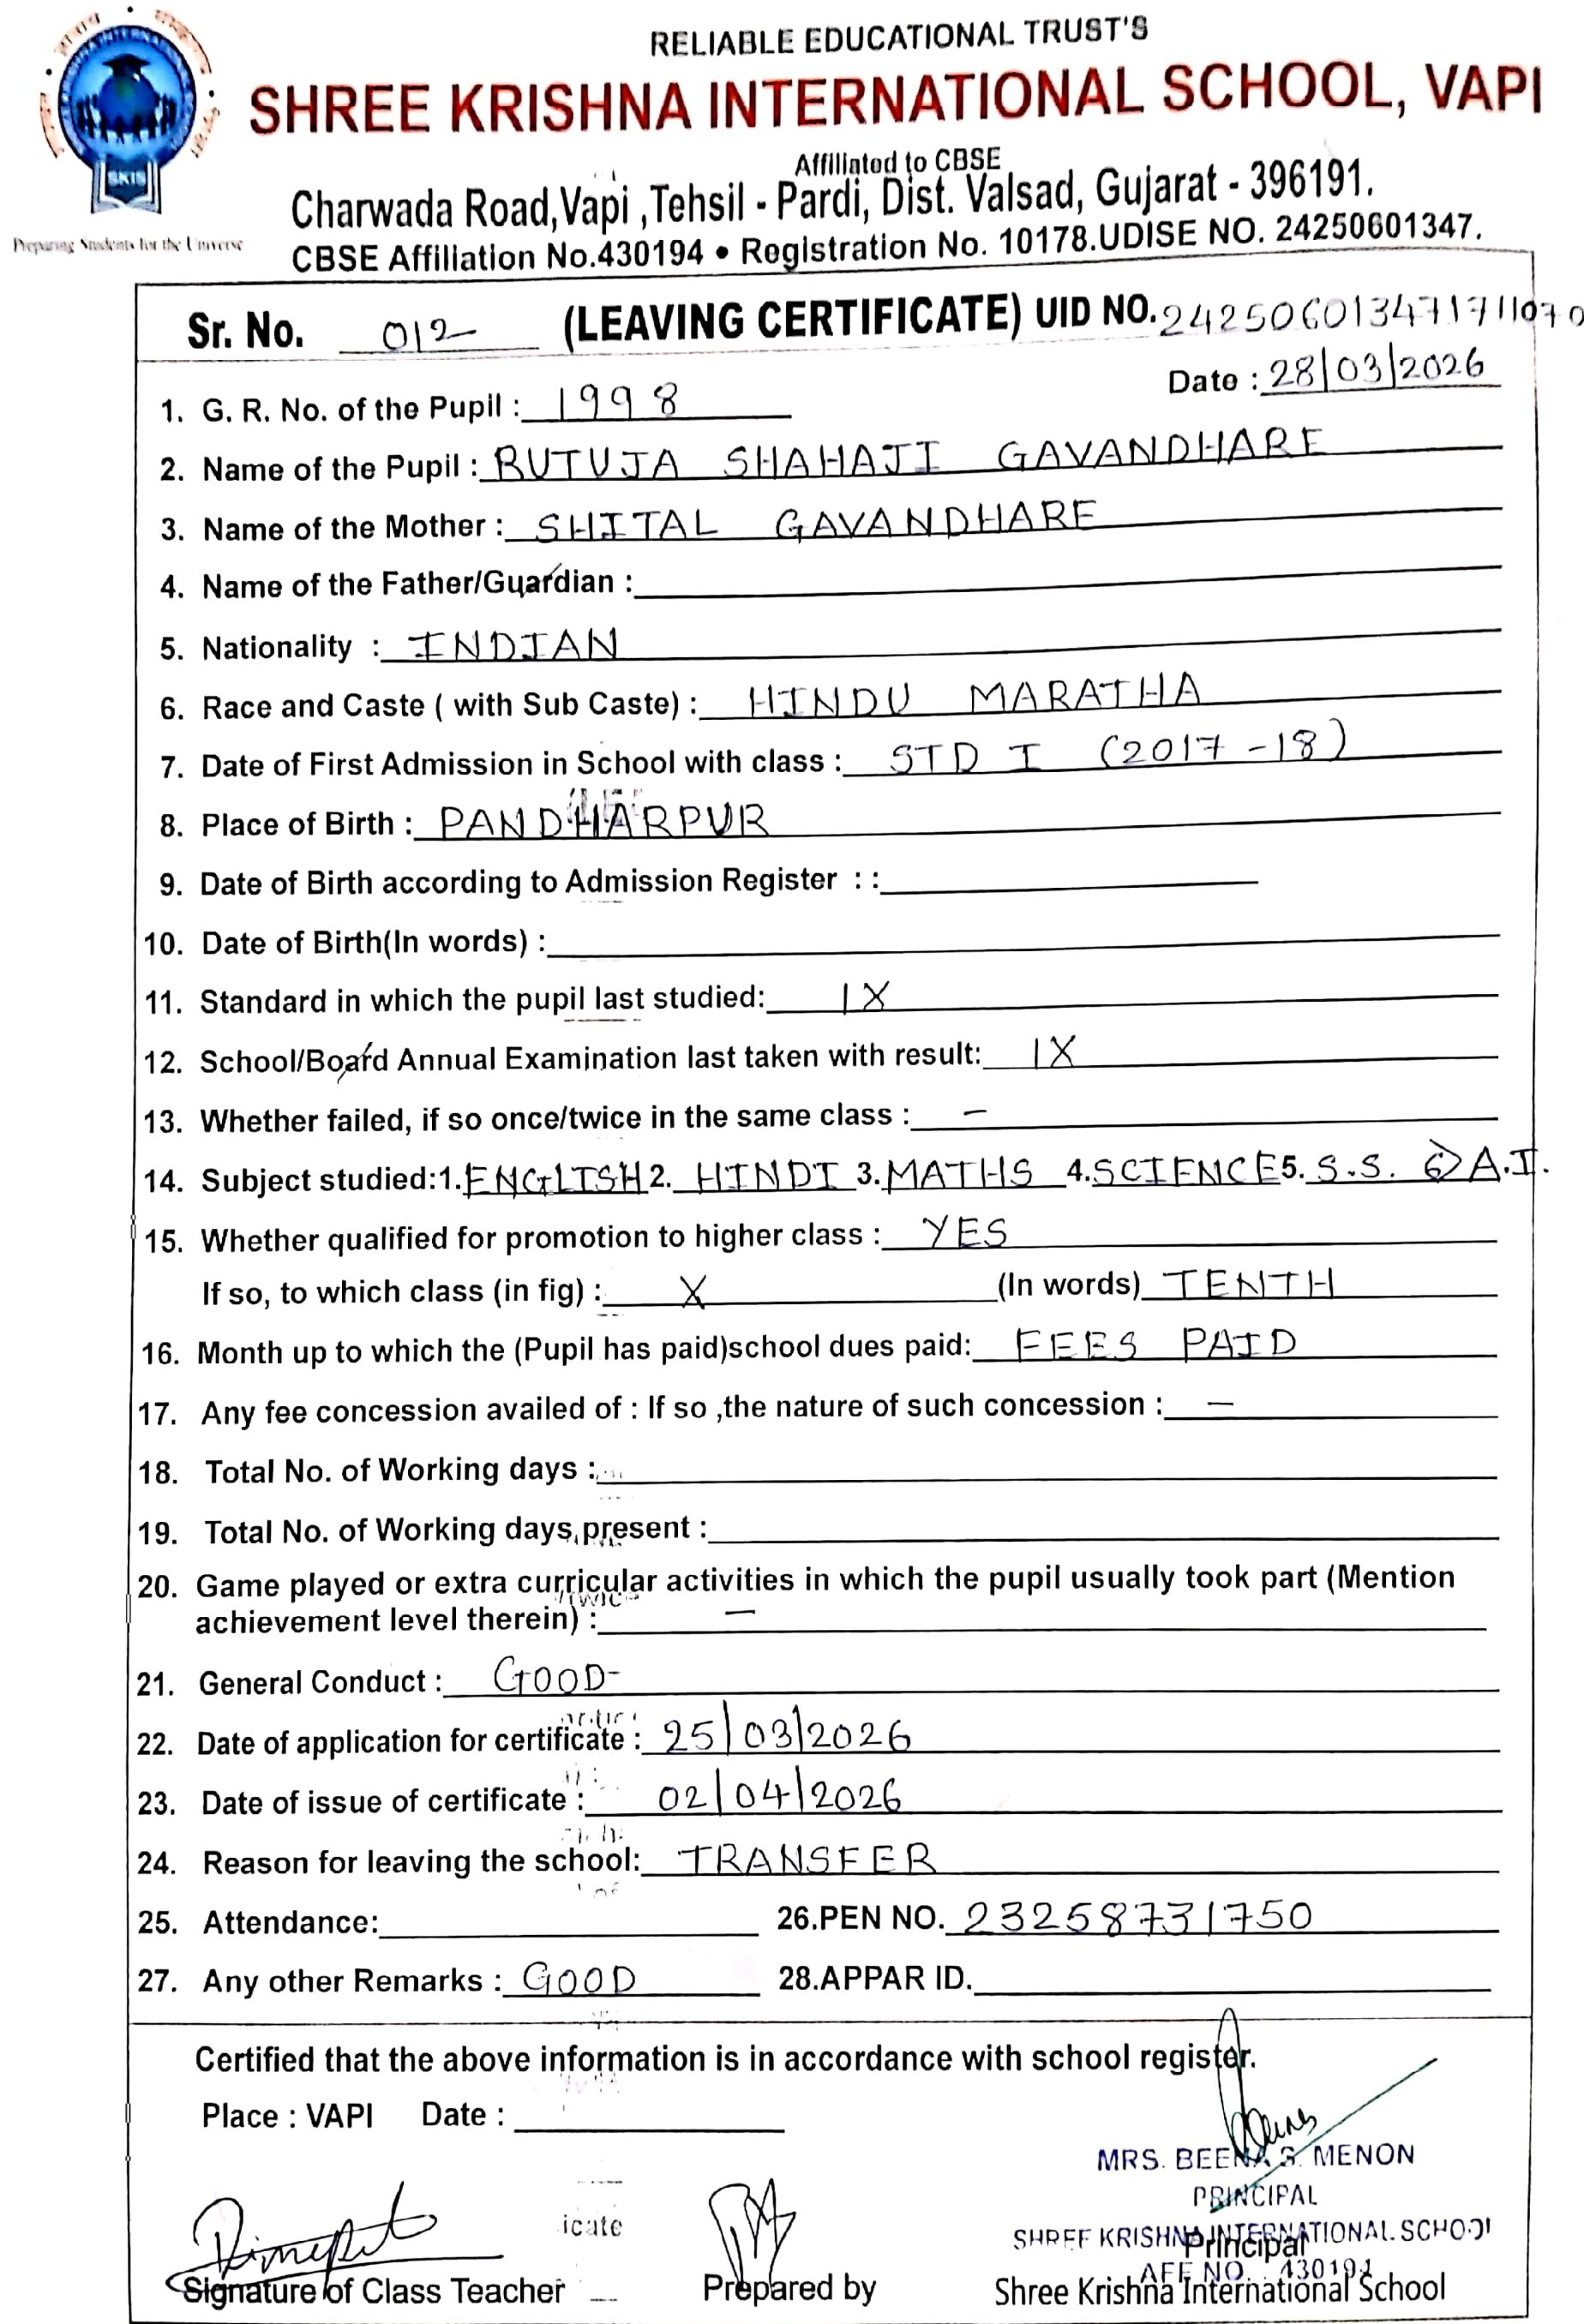 RELIABLE EDUCATIONAL TRUST'S
SHREE KRISHNA INTERNATIONAL SCHOOL, VAPI
Affiliated to CBSE
Charwada Road,Vapi ,Tehsil - Pardi, Dist. Valsad, Gujarat - 396191.
CBSE Affiliation No.430194 • Registration No. 10178.UDISE NO. 24250601347.
SKIS
Preparing Students for the Universe
Sr. No. 012 (LEAVING CERTIFICATE) UID NO. 242506013471711070
Date : 28/03/2026
1. G. R. No. of the Pupil : 1998
2. Name of the Pupil : RUTUJA SHAHAJI GAVANDHARE
3. Name of the Mother : SHITAL GAVANDHARE
4. Name of the Father/Guardian :
5. Nationality : INDIAN
6. Race and Caste ( with Sub Caste) : HINDU MARATHA
7. Date of First Admission in School with class : STD I (2017-18)
8. Place of Birth : PANDHARPUR
9. Date of Birth according to Admission Register : :
10. Date of Birth(In words) :
11. Standard in which the pupil last studied: IX
12. School/Board Annual Examination last taken with result: IX
13. Whether failed, if so once/twice in the same class : –
14. Subject studied:1.ENGLISH 2. HINDI 3.MATHS 4.SCIENCE 5. S.S. 6> A.I.
15. Whether qualified for promotion to higher class : YES
If so, to which class (in fig) : X (In words) TENTH
16. Month up to which the (Pupil has paid)school dues paid: FEES PAID
17. Any fee concession availed of : If so ,the nature of such concession : –
18. Total No. of Working days :
19. Total No. of Working days present :
20. Game played or extra curricular activities in which the pupil usually took part (Mention
achievement level therein) : –
21. General Conduct : GOOD
22. Date of application for certificate : 25/03/2026
23. Date of issue of certificate : 02/04/2026
24. Reason for leaving the school: TRANSFER
25. Attendance: 26.PEN NO. 23258731750
27. Any other Remarks : GOOD 28.APPAR ID.
Certified that the above information is in accordance with school register.
Place : VAPI Date :
MRS. BEENA S. MENON
PRINCIPAL
SHREE KRISHNA INTERNATIONAL SCHOOL
Principal
AFF NO. : 430194
icate
Signature of Class Teacher Prepared by Shree Krishna International School